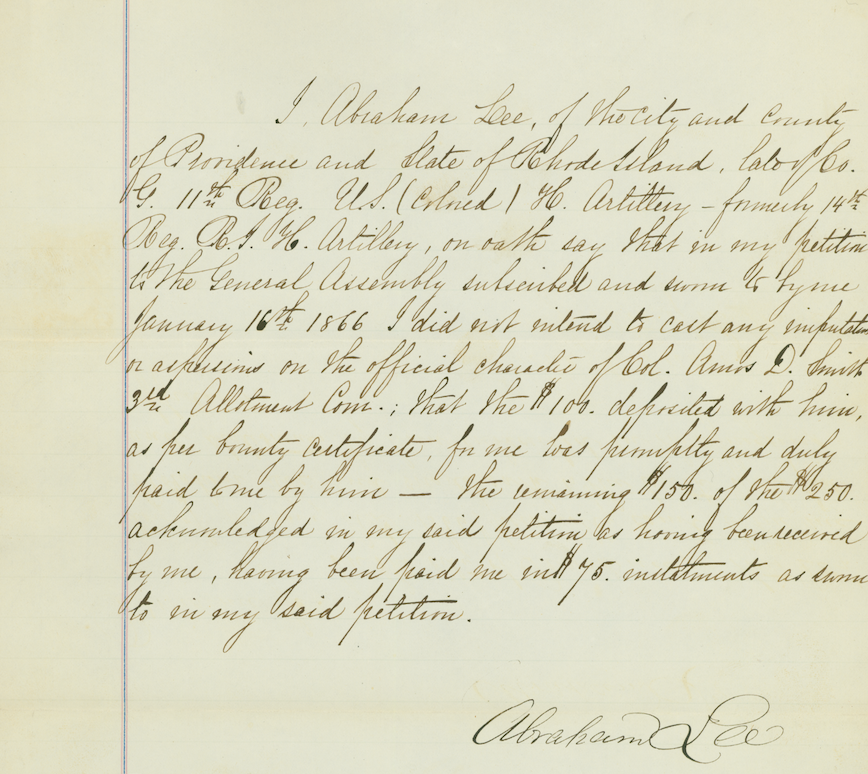 I, Abraham Lee, of the City and County
of Providence and State of Rhode Island, late of Co.
G. 11th Reg. U.S. (Colored) H. Artillery – formerly 14th
Reg. R.I. H. Artillery, on oath say that in my petition
to the General Assembly subscribed and sworn to by me
January 16th 1866 I did not intend to cast any imputation
or aspersions on the official character of Col. Amos D. Smith
3rd Allotment Com.; that the $100. deposited with him,
as per bounty certificate, for me was promptly and duly
paid to me by him — the remaining $150. of the $250.
acknowledged in my said petition as having been received
by me, having been paid me in $75. instalments as sworn
to in my said petition.
Abraham Lee